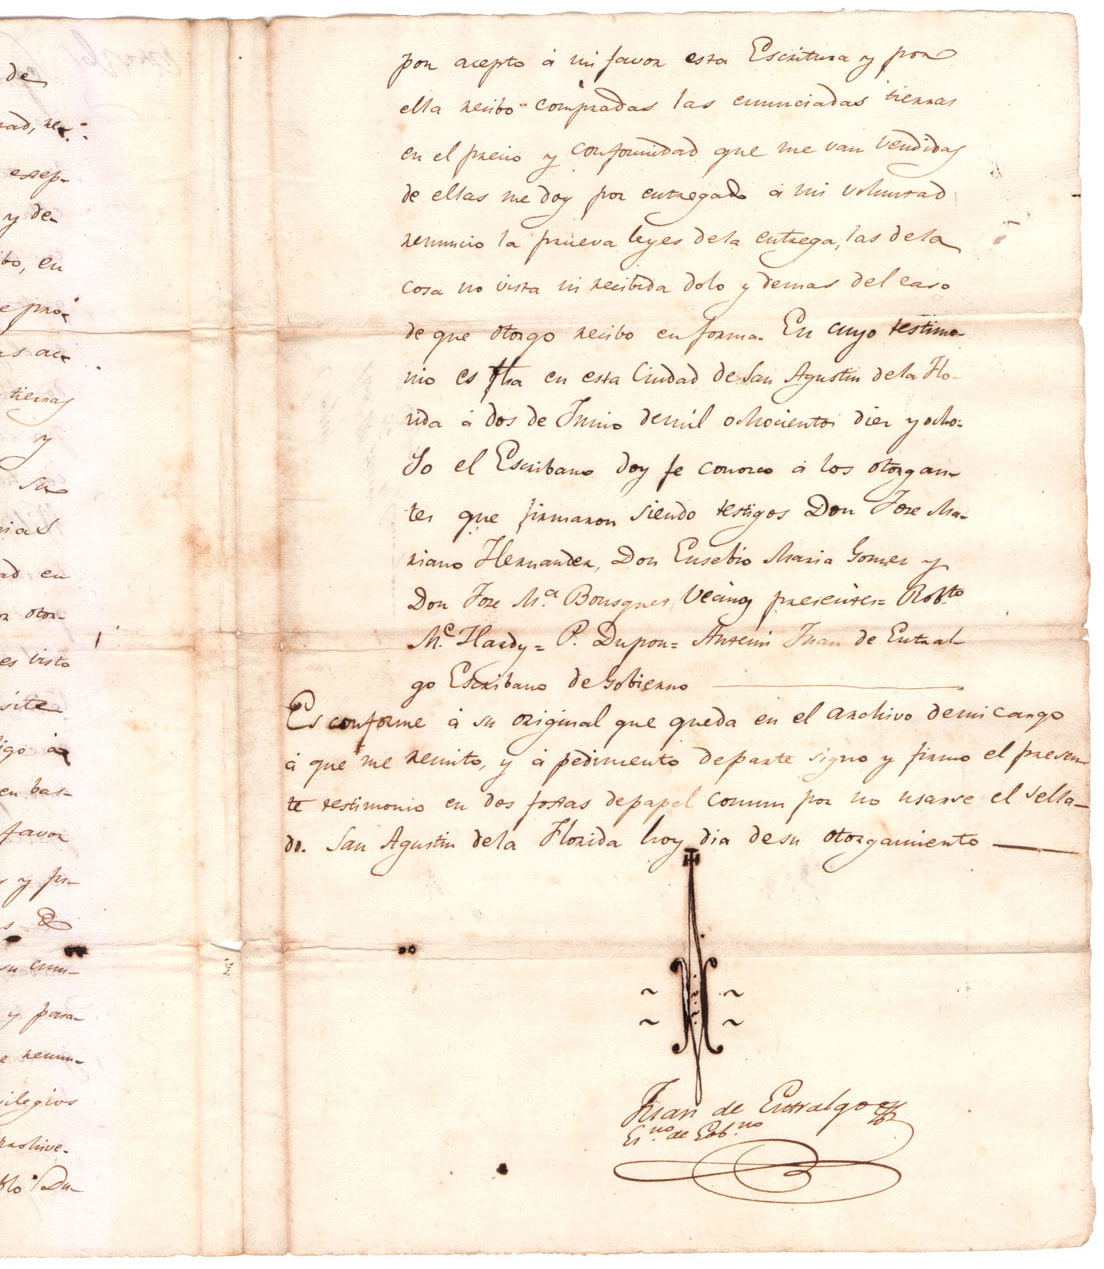 de
rad, re-
esep-
y de-
ibo, en
e pro-
as ac-
tierras
y
su
nias
ad en
or otor-
es visto
site
igo a
en bas-
favor
s y pr-
s &
su cum-
y para
e renun-
ilegios
rachive-
blo Du-
por acepto á mi favor esta Escritura y por
ella recibo compradas las enunciadas tierras
en el precio y conformidad que me van vendidas
de ellas me doy por entregado á mi voluntad
renuncio la prueva leyes dela entrega, las dela
cosa no vista ni recibida dolo y demas del caso
de que otorgo recibo en forma. En cuyo testimo-
nio es fha en esta Ciudad de San Agustin dela Flo-
rida á dos de Junio demil ochocientos diez y ocho.
Yo el Escribano doy fe conozco á los otorgan-
tes que firmaron siendo testigos Don Jose Ma-
riano Hernandez, Don Eusebio Maria Gomez y
Don Jose M.a Bousquet Vecinos presentes= Rob.to
M.c Hardy= P. Dupon= Antemi Juan de Entral-
go Escribano de Gobierno
Es conforme á su original que queda en el archivo demi cargo
á que me remito, y á pedimento departe signo y firmo el presen-
te testimonio en dos fojas depapel comun por no usarse el sella-
do. San Agustin dela Florida hoy dia desu otorgamiento
Juan de Entralgo
Es.no de Gob.no